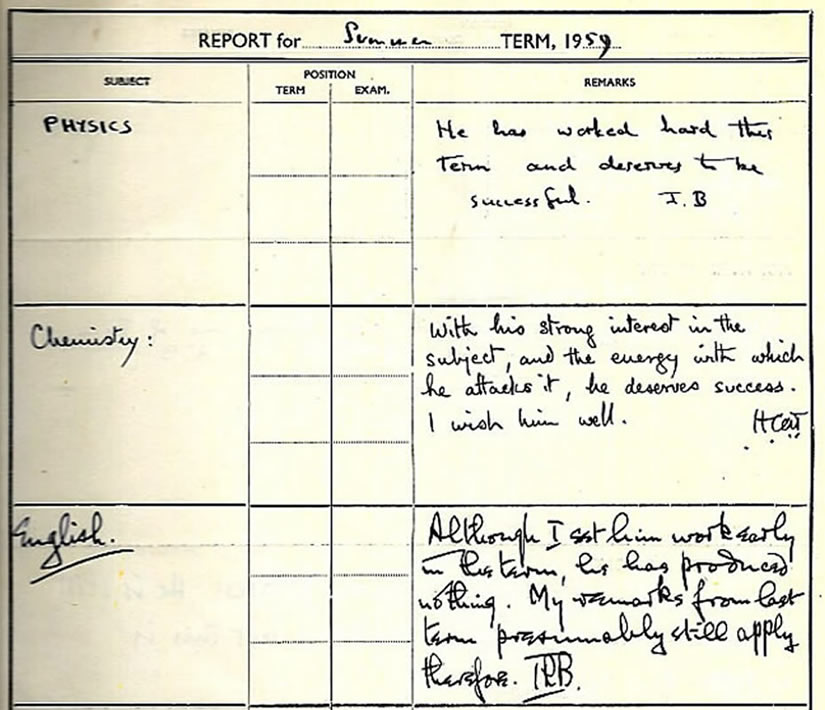 REPORT for Summer TERM, 1959
SUBJECT
POSITION
TERM EXAM.
REMARKS
PHYSICS
He has worked hard this
term and deserves to be
successful. I.B
Chemistry:
With his strong interest in the
subject, and the energy with which
he attacks it, he deserves success.
I wish him well.
English.
Although I set him work early
in the term, he has produced
nothing. My remarks from last
term presumably still apply
therefore.